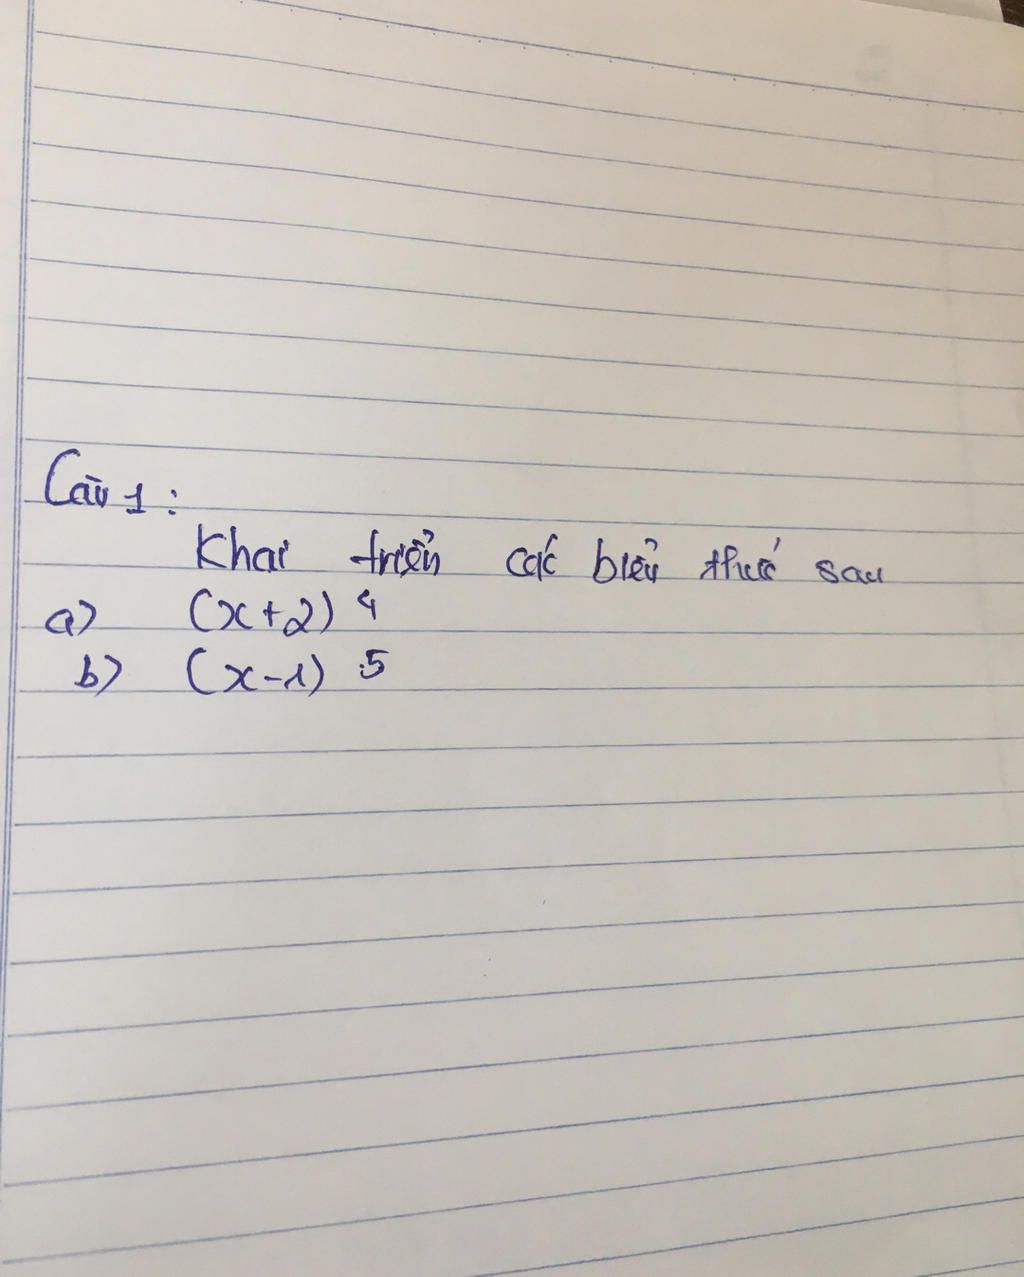 Câu 1:
Khai triển các biểu thức sau
a) (x+2) 4
b) (x-1) 5